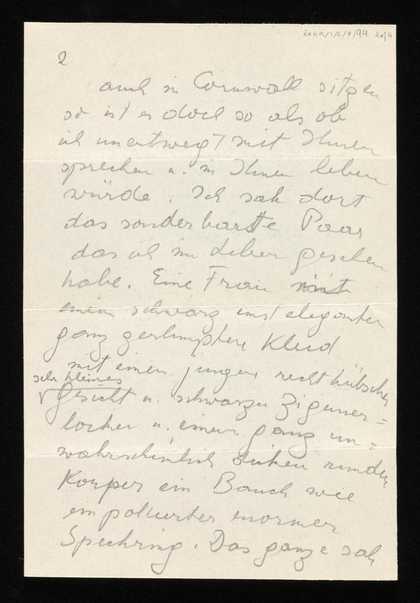 2
auch in Cornwall sitzen
so ist es doch so als ob
ich unentwegt mit Ihnen
sprechen u. in Ihnen leben
würde. Ich sah dort
das sonderbarste Paar
das ich im Leben gesehen
habe. Eine Frau mit
einem schwarz einst eleganten
ganz zerlumpten Kleid
mit einem jungen recht hübschen
sehr kleines
Gesicht u. schwarzen Zigeuner=
locken u. einem ganz un=
wahrscheinlich dicken runden
Körper ein Bauch wie
ein enormer
Speckring. Das ganze sah